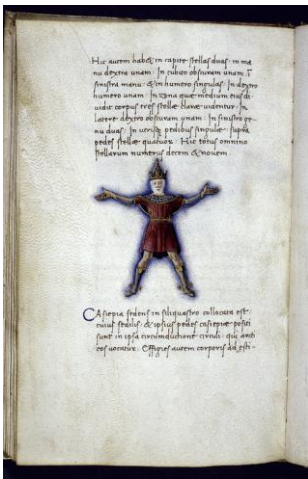 Hic autem habet in capite stellas duas. in ma
nu dextra unam. In cubito obscuram unam. i
sinistra manu. & in humero singulas. In dextro
humero unam. In zona quae medium eius di
vidit corpus tres stellae clarae videntur. In
latere dextro obscuram unam. In sinistro ge
nu duas. In utrisque pedibus singulae. supra
pedes stellae quatuor. Hic totus omnino
stellarum numerus decem & novem.
CAsiepia sedens in siliquastro collocata est.
cuius sedilis. & ipsius pedes casiepiae positi
sunt in ipsa circumductione circuli. qui anti
cos vocatur. Effigies autem corporis ad esti-